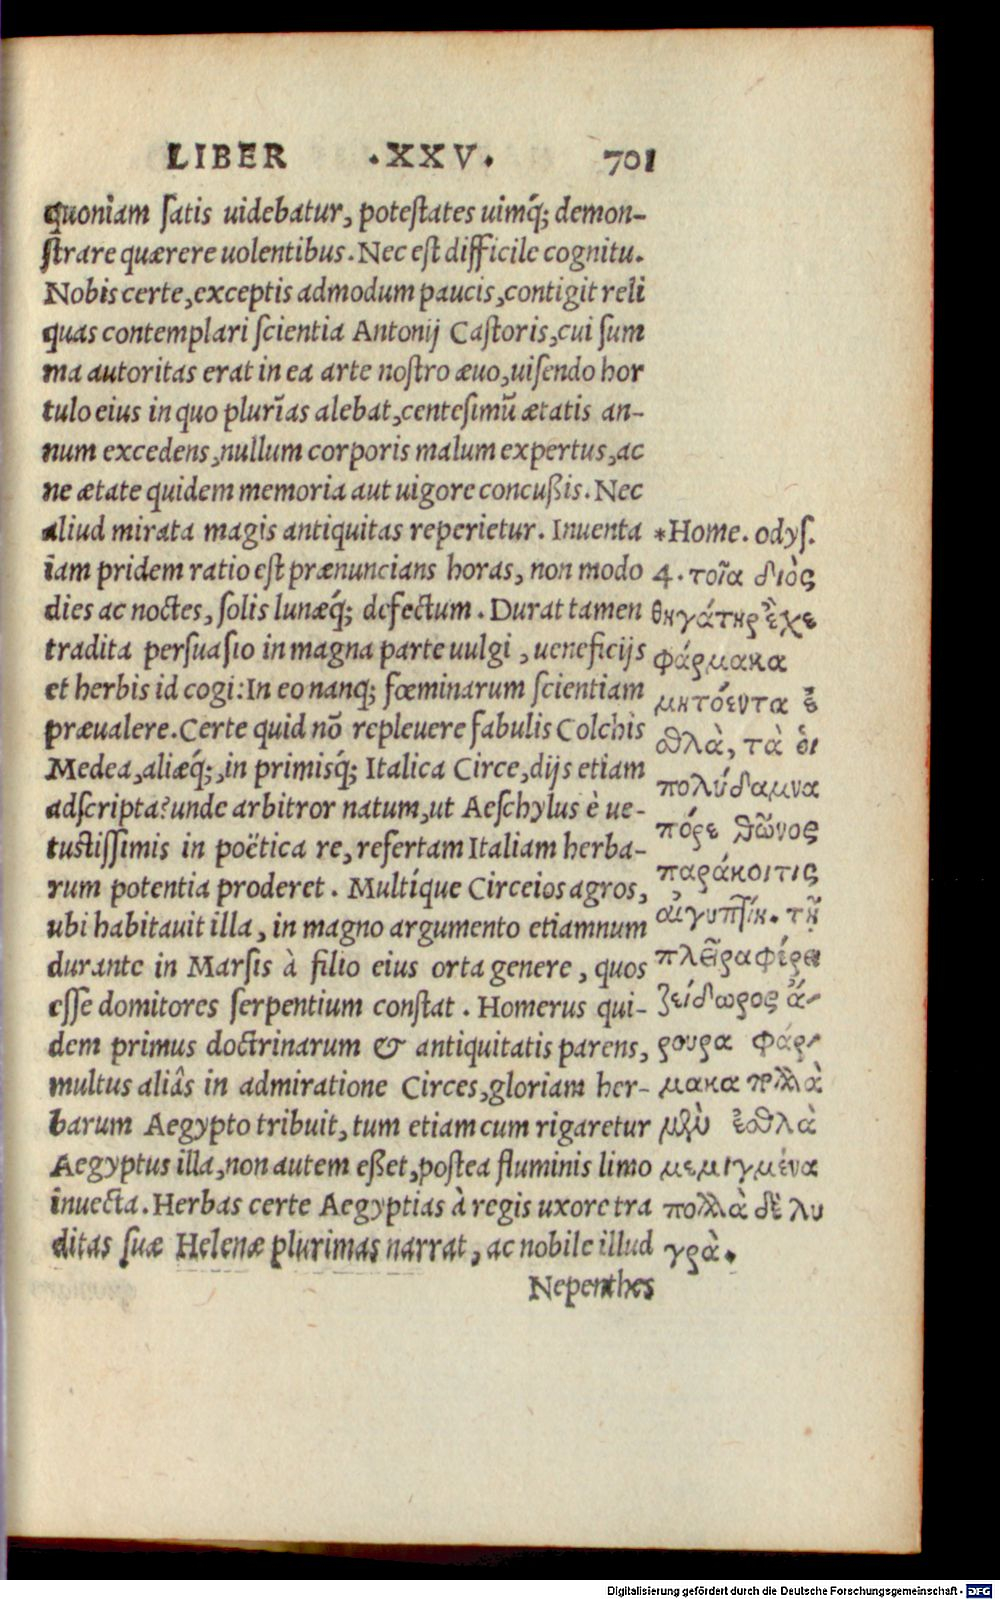 LIBER ·XXV· 701
quoniam satis uidebatur, potestates uimq́; demon-
strare quærere uolentibus. Nec est difficile cognitu.
Nobis certe, exceptis admodum paucis, contigit reli
quas contemplari scientia Antonij Castoris, cui sum
ma autoritas erat in ea arte nostro æuo, uisendo hor
tulo eius in quo plurĩas alebat, centesimũ ætatis an-
num excedens, nullum corporis malum expertus, ac
ne ætate quidem memoria aut uigore concußis. Nec
aliud mirata magis antiquitas reperietur. Inuenta
iam pridem ratio est prænuncians horas, non modo
dies ac noctes, solis lunæq́; defectum. Durat tamen
tradita persuasio in magna parte uulgi, ueneficijs
et herbis id cogi: In eo nanq; fœminarum scientiam
præualere. Certe quid nõ repleuere fabulis Colchis
Medea, aliæq́;, in primisq́; Italica Circe, dijs etiam
adscripta? unde arbitror natum, ut Aeschylus è ue-
tustissimis in poëtica re, refertam Italiam herba-
rum potentia proderet. Multíque Circeios agros,
ubi habitauit illa, in magno argumento etiamnum
durante in Marsis à filio eius orta genere, quos
esse domitores serpentium constat. Homerus qui-
dem primus doctrinarum & antiquitatis parens,
multus aliâs in admiratione Circes, gloriam her-
barum Aegypto tribuit, tum etiam cum rigaretur
Aegyptus illa, non autem eßet, postea fluminis limo
inuecta. Herbas certe Aegyptias à regis uxore tra
ditas suæ Helenæ plurimas narrat, ac nobile illud
Nepenthes
*Home. odys.
4. τοῖα διὸς
θηγάτηρ ἔχε
φάρμακα
μητόεντα ἐ
σθλὰ, τὰ ὁι
πολύδαμνα
πόρε θῶνος
παράκοιτις
αἰγυπτίη. τῆ
πλεῖρα φέρει
ζείδωρος ἄ-
ρουρα φάρ-
μακα πολλὰ
μὲν ἐσθλὰ
μεμιγμένα
πολλὰ δὲ λυ
γρὰ.
Digitalisierung gefördert durch die Deutsche Forschungsgemeinschaft - DFG